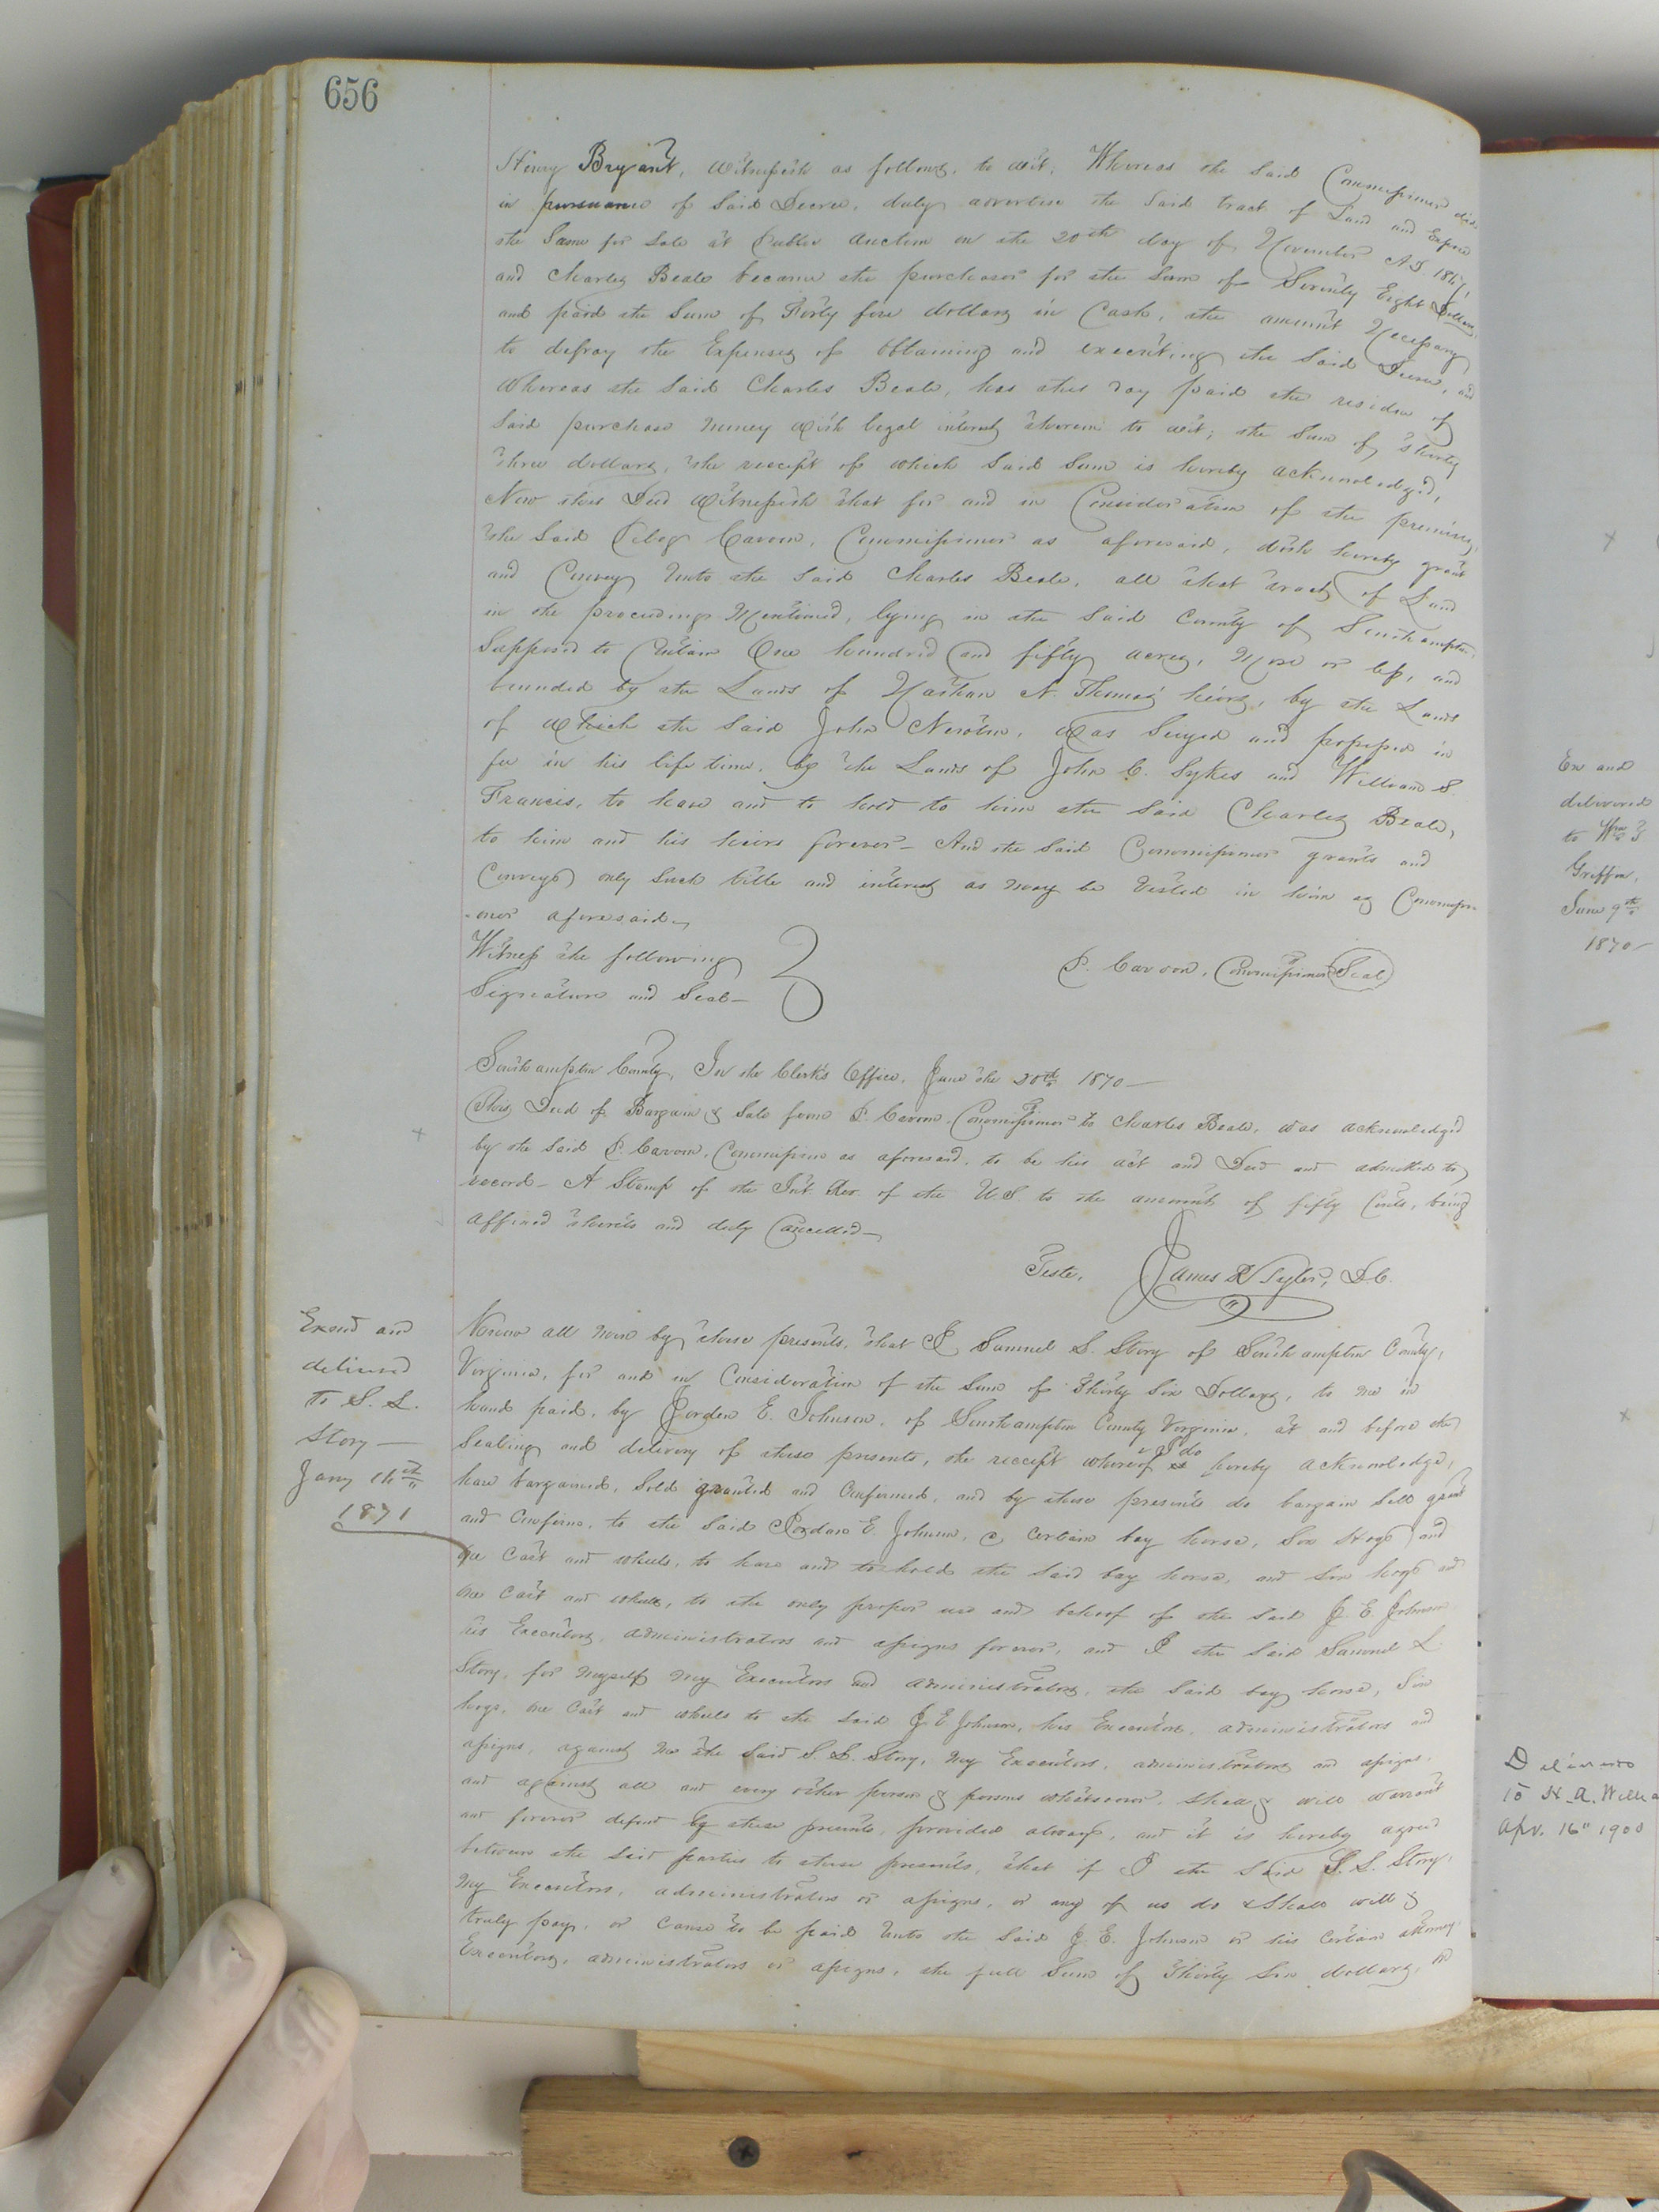 656
Henry Bryant, Witnesseth as follows, to wit, Whereas the Said Commissioner did
in pursuance of Said Decree, duly advertise the Said tract of Land and Expose
the Same for Sale at Public Auction on the 20th day of November AD
and Charles Beale became the purchaser for the Sum of Seventy Eight Dollars,
and paid the Sum of Forty five dollars in Cash, the amount Necessary
to defray the Expenses of obtaining and executing the Said Decree, and
Whereas the Said Charles Beale, has this day paid the residue of
Said purchase money with legal interest thereon to wit; the Sum of thirty
three dollars, the receipt of which Said Sum is hereby acknowledged,
Now this Deed Witnesseth that for and in Consideration of the premises,
the Said Carson, Commissioner as aforesaid, doth hereby grant
and Convey Unto the Said Charles Beale, all that tract of Land
in the proceedings Mentioned, lying in the Said County of Southampton
Supposed to Contain One hundred and fifty acres, More or less, and
bounded by the Lands of Nathan N. Thomas' heirs, by the Lands
of which the Said John Newton, was Seized and possessed in
fee in his life time, by the Lands of John C. Sykes and William S.
Francis, to have and to hold to him the Said Charles Beale,
to him and his heirs forever— And the Said Commissioner grants and
Conveys only Such title and interest as may be Vested in him as Commissi
-oner aforesaid—
Witness the following
Signature and Seal—
Commissioner (Seal)
Southampton County, In the Clerk's Office, June the 20th 1870—
This Deed of Bargain & Sale from Commissioner to Charles Beale, was acknowledged
by the Said Commissioner as aforesaid, to be his act and Deed and admitted to
record— A Stamp of the Int. Rev. of the U.S. to the amount of fifty Cents, being
affixed thereto and duly Cancelled—
Teste, James Tyler, D.C.
Examd and
delivered
To S. L.
Story—
Jany 16th
1871
Know all men by these presents, that I Samuel S. Story of Southampton County,
Virginia, for and in Consideration of the Sum of Thirty Six Dollars, to me in
hand paid, by Jordan E. Johnson, of Southampton County Virginia, at and before the
Sealing and delivery of these presents, the receipt whereof I do hereby acknowledge,
have bargained, Sold granted and Confirmed, and by these presents do bargain Sell grant
and Confirm, to the Said Jordan E. Johnson, a certain bay horse, Six Hogs and
one Cart and wheels, to have and to hold the Said bay horse, and Six hogs and
one Cart and wheels, to the only proper use and behoof of the Said J. E. Johnson
his Executors, administrators and assigns forever, and I the Said Samuel L
Story, for Myself My Executors and administrators, the Said bay horse, Six
hogs, one Cart and wheels to the Said J. E. Johnson, his Executors, administrators and
assigns, against me the Said S. S. Story, My Executors, administrators and assigns,
and against all and every other person & persons whatsoever, Shall & will warrant
and forever defend by these presents, provided always, and it is hereby agreed
between the Said parties to these presents, that if I the Said S. S. Story,
My Executors, administrators or assigns, or any of us do & Shall well &
truly pay, or Cause to be paid Unto the Said J. E. Johnson or his Certain attorney,
Executors, administrators or assigns, the full Sum of Thirty Six dollars, in
Ex and
delivered
to Wm J
Griffin,
June 9th
1870—
Delivered
To H. A. Willia
Apr. 16" 1900